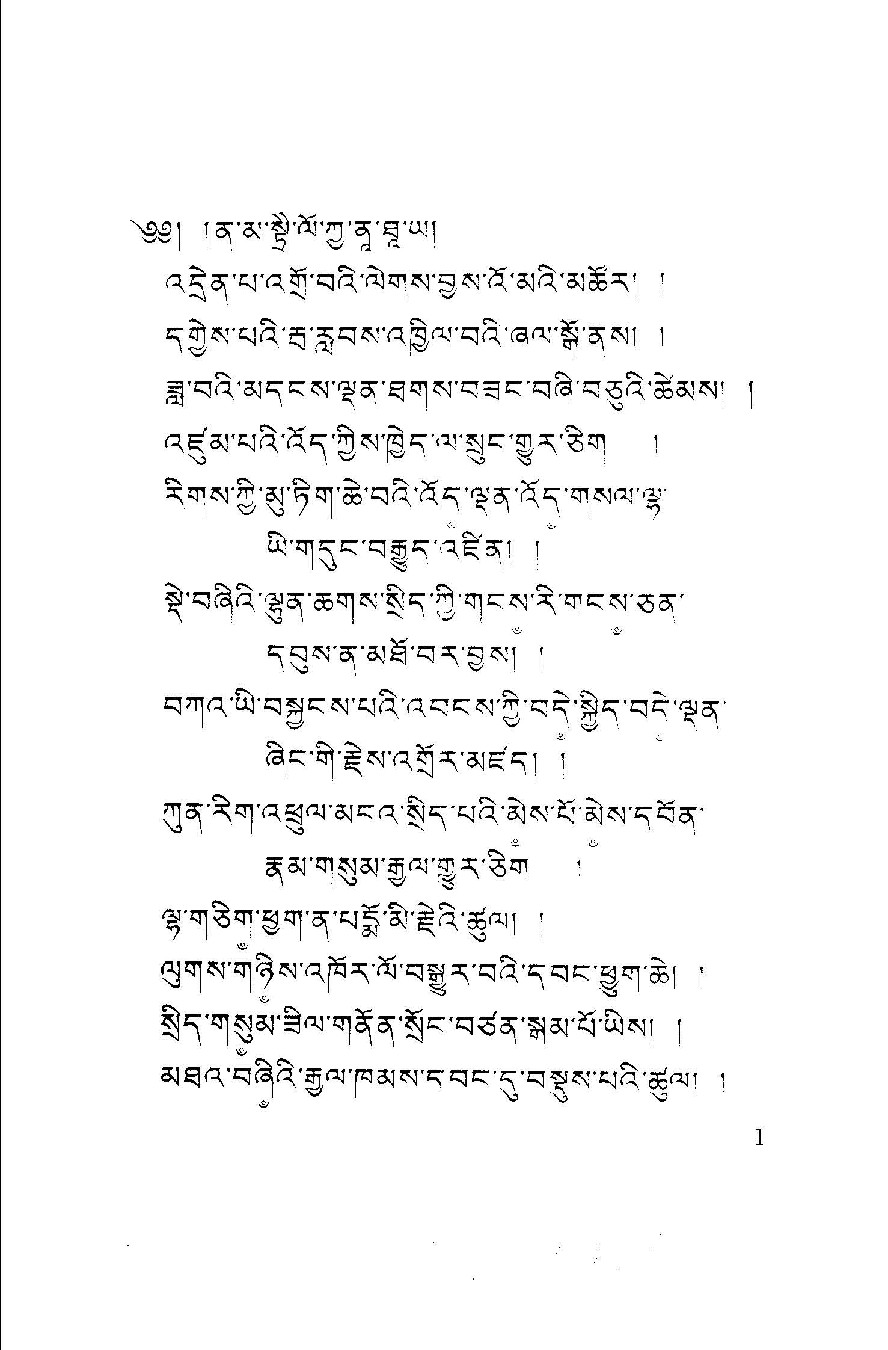 ༄༅། །ན་མ་སྟྲེ་ལོ་ཀྱ་ནཱ་ཐཱ་ཡ།
འདྲེན་པ་འགྲོ་བའི་ལེགས་བྱས་འོ་མའི་མཚོར། །
དགྱེས་པའི་རྦ་རླབས་འཁྱིལ་བའི་ཞལ་སྒོ་ནས། །
ཟླ་བའི་མདངས་ལྡན་ཐགས་བཟང་བཞི་བཅུའི་ཚེམས། །
འཛུམ་པའི་འོད་ཀྱིས་ཁྱེད་ལ་སྲུང་གྱུར་ཅིག །
རིགས་ཀྱི་མུ་ཏིག་ཆེ་བའི་འོད་ལྡན་འོད་གསལ་ལྷ་
ཡི་གདུང་བརྒྱུད་འཛིན། །
སྡེ་བཞིའི་ལྷུན་ཆགས་སྲིད་ཀྱི་གངས་རི་གངས་ཅན་
དབུས་ན་མཐོ་བར་བྱས། །
བཀའ་ཡི་བསྐྱངས་པའི་འབངས་ཀྱི་བདེ་སྐྱིད་བདེ་ལྡན་
ཞིང་གི་རྗེས་འགྲོར་མཛད། །
ཀུན་རིག་འཕྲུལ་མངའ་སྲིད་པའི་མེས་པོ་མེས་དབོན་
རྣམ་གསུམ་རྒྱལ་གྱུར་ཅིག །
ལྷ་གཅིག་ཕྱག་ན་པདྨོ་མི་རྗེའི་ཚུལ། །
ལུགས་གཉིས་འཁོར་ལོ་བསྒྱུར་བའི་དབང་ཕྱུག་ཆེ། །
སྲིད་གསུམ་ཟིལ་གནོན་སྲོང་བཙན་སྒམ་པོ་ཡིས། །
མཐའ་བཞིའི་རྒྱལ་ཁམས་དབང་དུ་བསྡུས་པའི་ཚུལ། །
1